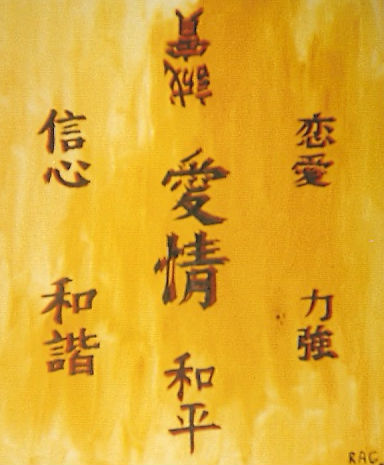 誠實
信心
戀愛
愛情
和諧
力強
和平
RAC